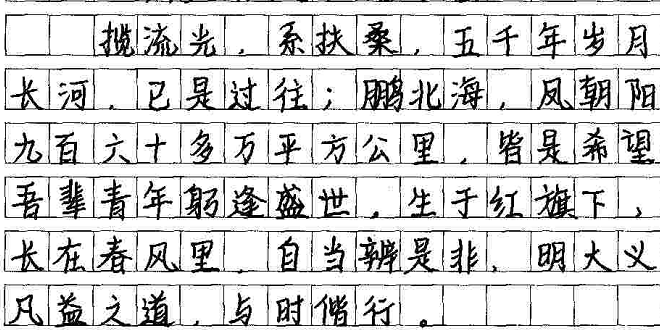 揽流光，系扶桑，五千年岁月
长河，已是过往；鹏北海，凤朝阳
九百六十多万平方公里，皆是希望
吾辈青年躬逢盛世，生于红旗下，
长在春风里，自当辨是非，明大义
凡益之道，与时偕行。